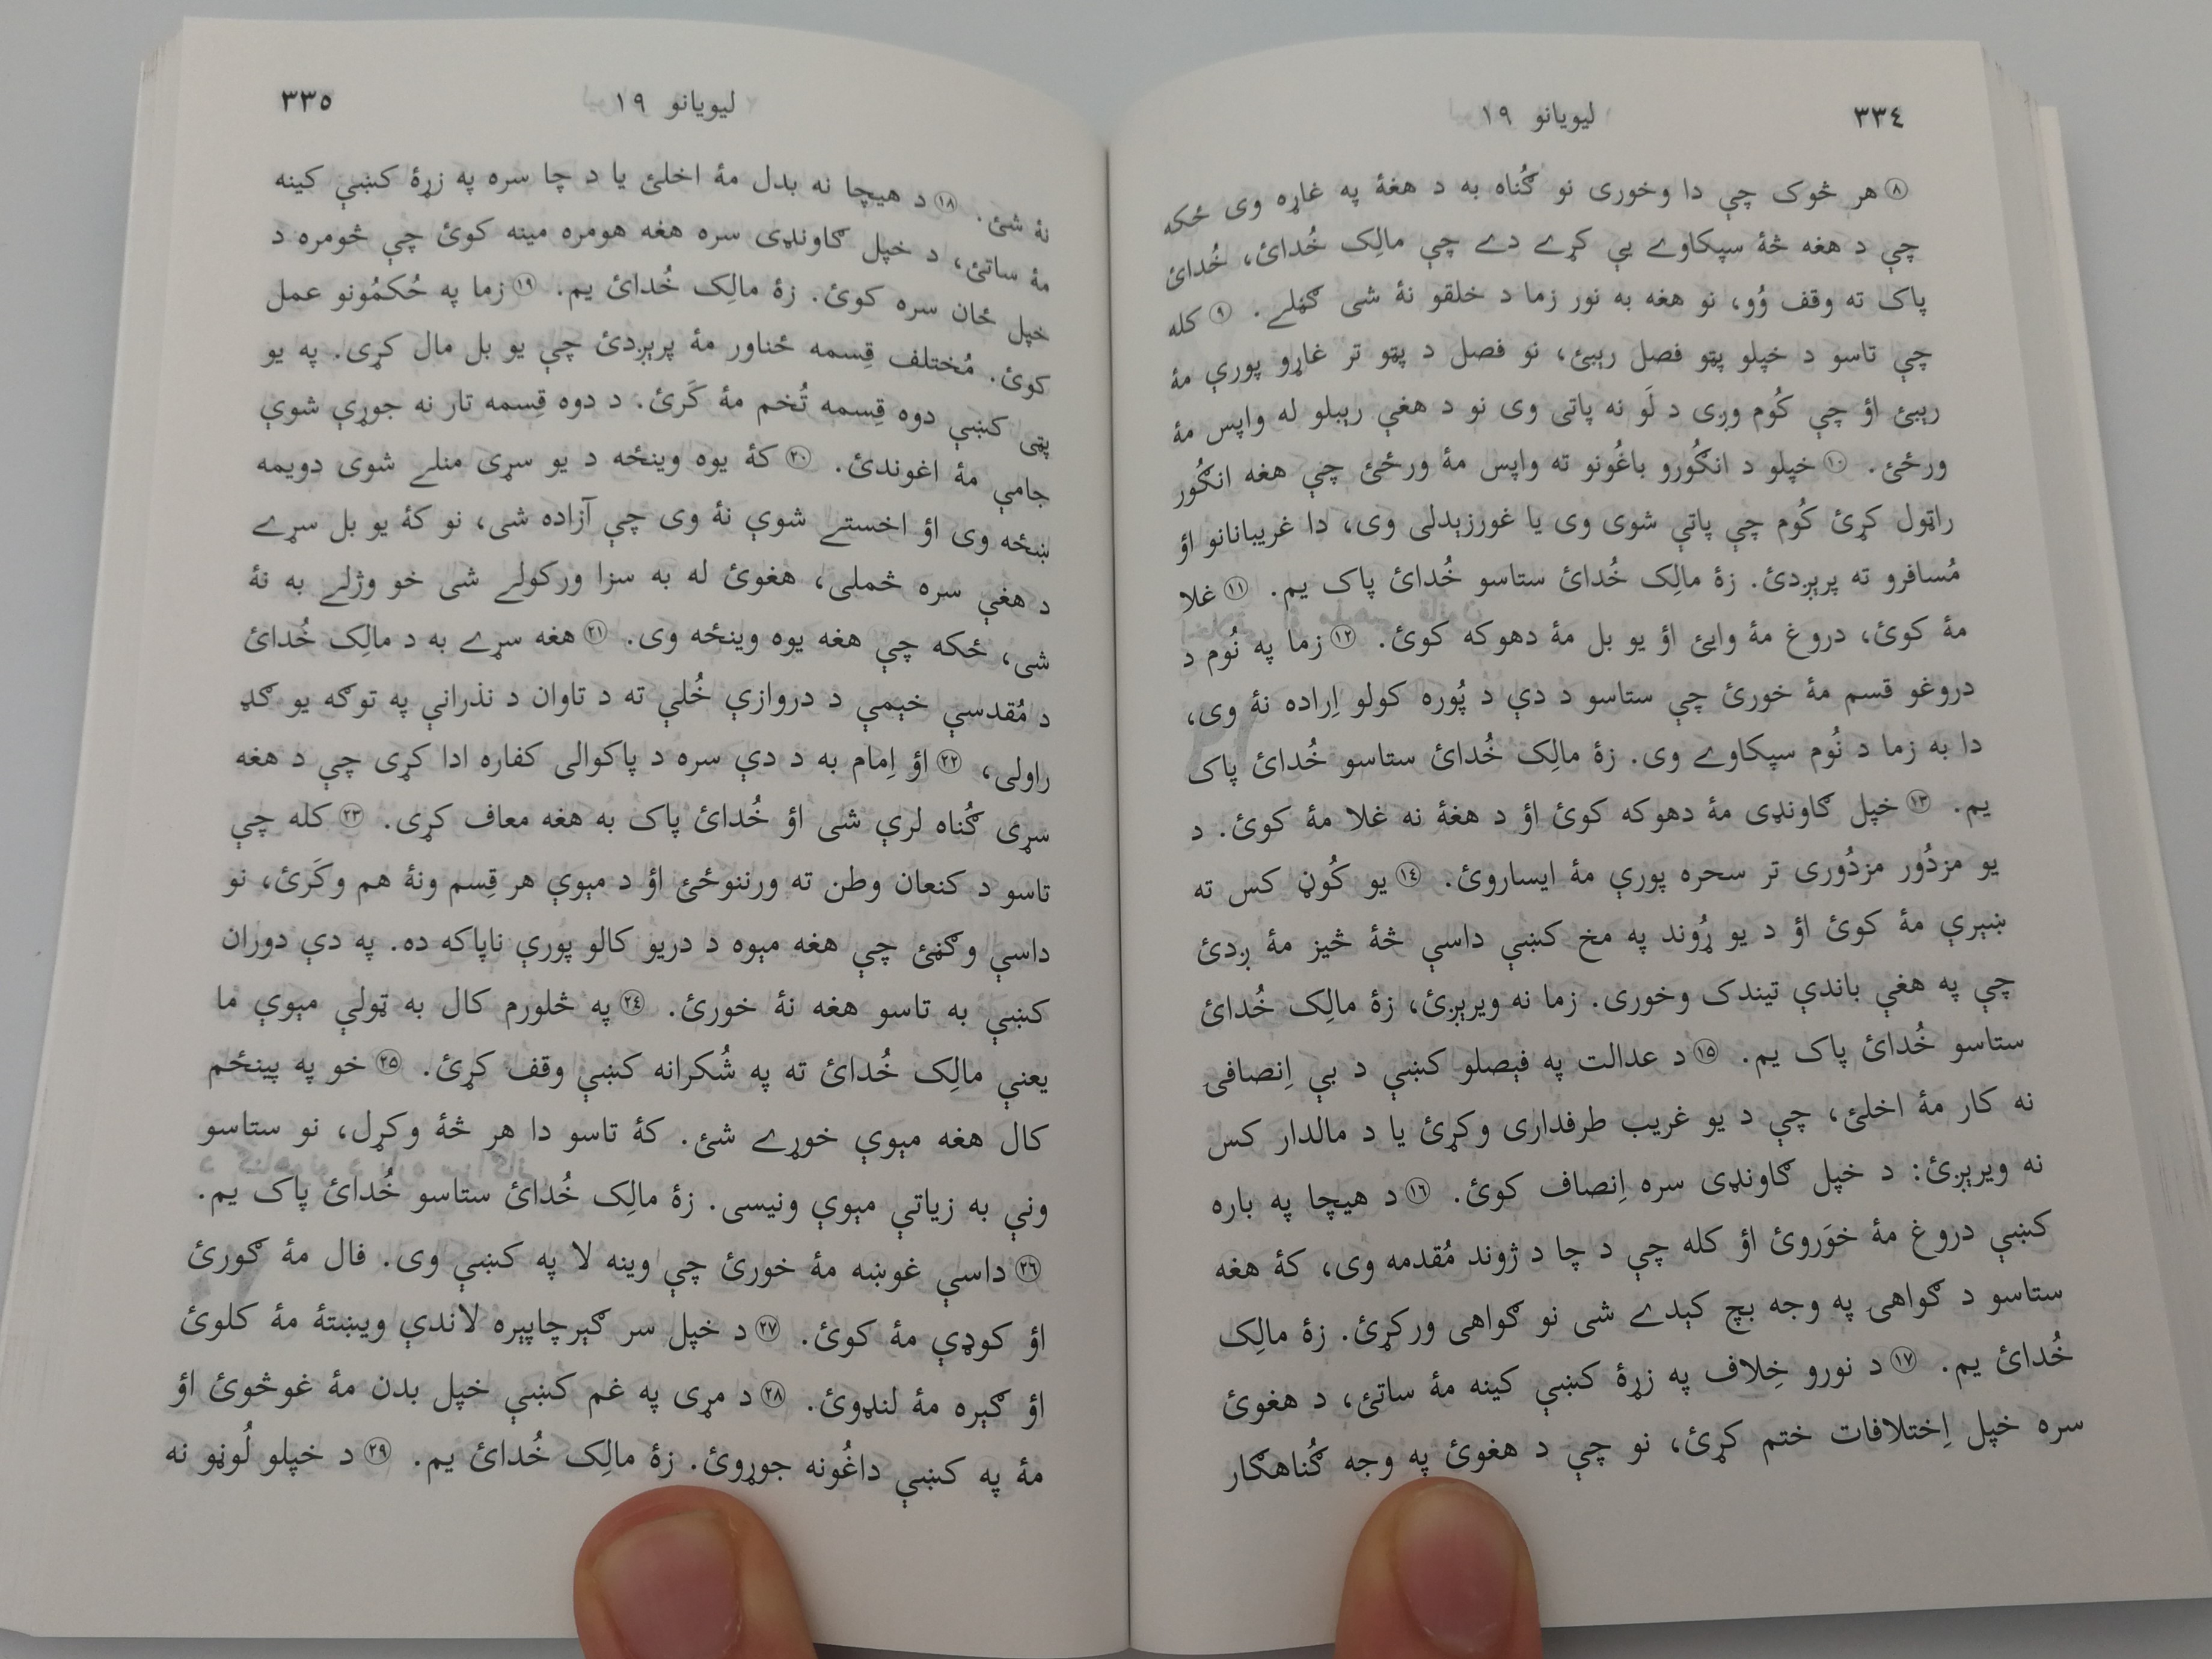 ٣٣٤ ليويانو ١٩
⑧ هر څوک چې دا وخوری نو ګُناه به د هغۀ په غاړه وی ځکه
چې د هغه څۀ سپکاوے يې کړے دے چې مالِک خُدائ، خُدائ
پاک ته وقف وُو، نو هغه به نور زما د خلقو نۀ شی ګڼلے. ⑨ کله
چې تاسو د خپلو پټو فصل رېبئ، نو فصل د پټو تر غاړو پورې مۀ
رېبئ اؤ چې کُوم وږی د لَو نه پاتی وی نو د هغې رېبلو له واپس مۀ
ورځئ. ⑩ خپلو د انګُورو باغُونو ته واپس مۀ ورځئ چې هغه انګُور
راټول کړئ کُوم چې پاتې شوی وی يا غورزېدلی وی، دا غريبانانو اؤ
مُسافرو ته پرېږدئ. زۀ مالِک خُدائ ستاسو خُدائ پاک يم. ⑪ غلا
مۀ کوئ، دروغ مۀ وايئ اؤ يو بل مۀ دهوکه کوئ. ⑫ زما په نُوم د
دروغو قسم مۀ خورئ چې ستاسو د دې د پُوره کولو اِراده نۀ وی،
دا به زما د نُوم سپکاوے وی. زۀ مالِک خُدائ ستاسو خُدائ پاک
يم. ⑬ خپل ګاونډی مۀ دهوکه کوئ اؤ د هغۀ نه غلا مۀ کوئ. د
يو مزدُور مزدُوری تر سحره پورې مۀ ايساروئ. ⑭ يو کُوڼ کس ته
ښېرې مۀ کوئ اؤ د يو ړُوند په مخ کښې داسې څۀ څيز مۀ ږدئ
چې په هغې باندې تيندک وخوری. زما نه ويرېږئ، زۀ مالِک خُدائ
ستاسو خُدائ پاک يم. ⑮ د عدالت په فېصلو کښې د بې اِنصافۍ
نه کار مۀ اخلئ، چې د يو غريب طرفداری وکړئ يا د مالدار کس
نه ويرېږئ: د خپل ګاونډی سره اِنصاف کوئ. ⑯ د هيچا په باره
کښې دروغ مۀ خوَروئ اؤ کله چې د چا د ژوند مُقدمه وی، کۀ هغه
ستاسو د ګواهۍ په وجه بچ کېدے شی نو ګواهی ورکړئ. زۀ مالِک
خُدائ يم. ⑰ د نورو خِلاف په زړۀ کښې کينه مۀ ساتئ، د هغوئ
سره خپل اِختلافات ختم کړئ، نو چې د هغوئ په وجه ګُناهګار
٣٣٥ ليويانو ١٩
نۀ شئ. ⑱ د هيچا نه بدل مۀ اخلئ يا د چا سره په زړۀ کښې کينه
مۀ ساتئ، د خپل ګاونډی سره هغه هومره مينه کوئ چې څومره د
خپل ځان سره کوئ. زۀ مالِک خُدائ يم. ⑲ زما په حُکمُونو عمل
کوئ. مُختلف قِسمه ځناور مۀ پرېږدئ چې يو بل مال کړی. په يو
پټی کښې دوه قِسمه تُخم مۀ کَرئ. د دوه قِسمه تار نه جوړې شوې
جامې مۀ اغوندئ. ⑳ کۀ يوه وينځه د يو سړی منلے شوی دويمه
ښځه وی اؤ اخستے شوې نۀ وی چې آزاده شی، نو کۀ يو بل سړے
د هغې سره څملی، هغوئ له به سزا ورکولے شی خو وژلے به نۀ
شی، ځکه چې هغه يوه وينځه وی. ㉑ هغه سړے به د مالِک خُدائ
د مُقدسې خېمې د دروازې خُلې ته د تاوان د نذرانې په توګه يو ګډ
راولی، ㉒ اؤ اِمام به د دې سره د پاکوالی کفاره ادا کړی چې د هغه
سړی ګُناه لرې شی اؤ خُدائ پاک به هغه معاف کړی. ㉓ کله چې
تاسو د کنعان وطن ته ورننوځئ اؤ د مېوې هر قِسم ونۀ هم وکَرئ، نو
داسې وګڼئ چې هغه مېوه د دريو کالو پورې ناپاکه ده. په دې دوران
کښې به تاسو هغه نۀ خورئ. ㉔ په څلورم کال به ټولې مېوې ما
يعنې مالِک خُدائ ته په شُکرانه کښې وقف کړئ. ㉕ خو په پينځم
کال هغه مېوې خوړے شئ. کۀ تاسو دا هر څۀ وکړل، نو ستاسو
ونې به زياتې مېوې ونيسی. زۀ مالِک خُدائ ستاسو خُدائ پاک يم.
㉖ داسې غوښه مۀ خورئ چې وينه لا په کښې وی. فال مۀ ګورئ
اؤ کوډې مۀ کوئ. ㉗ د خپل سر ګېرچاپېره لاندې ويښتۀ مۀ کلوئ
اؤ ګېره مۀ لنډوئ. ㉘ د مړی په غم کښې خپل بدن مۀ غوڅوئ اؤ
مۀ په کښې داغُونه جوړوئ. زۀ مالِک خُدائ يم. ㉙ د خپلو لُوڼو نه